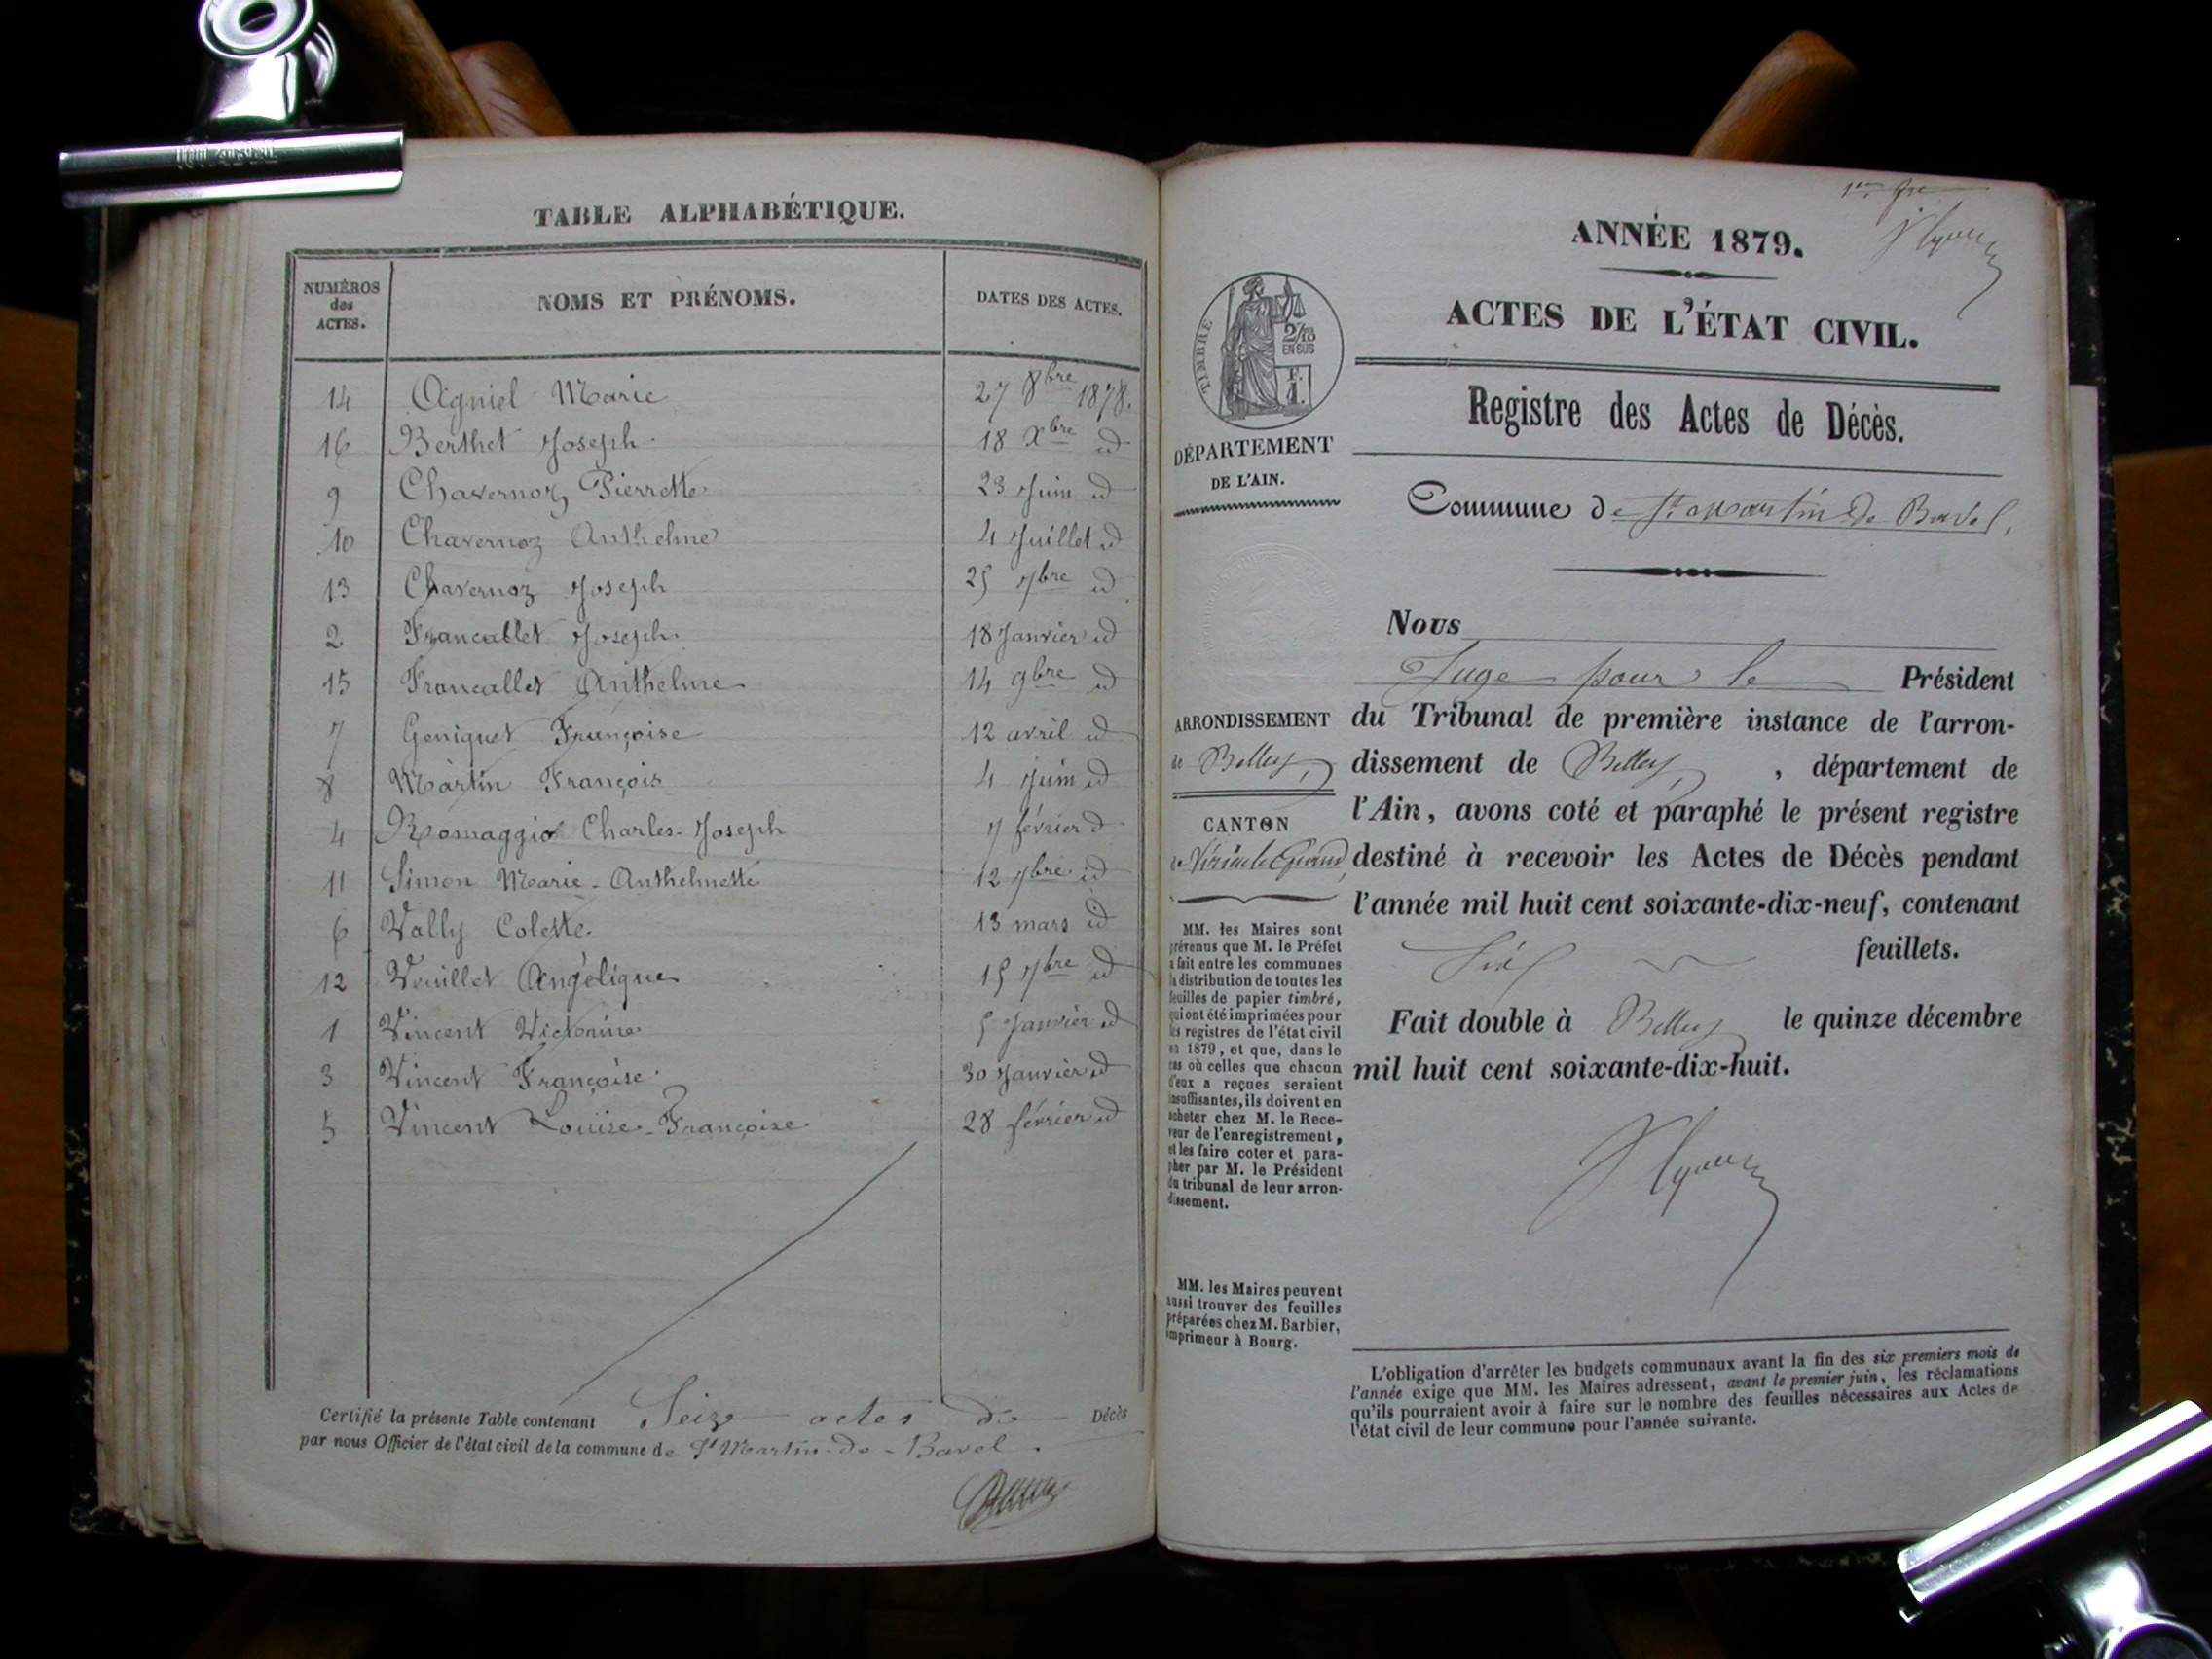 TABLE ALPHABÉTIQUE.
NUMÉROS des ACTES. NOMS ET PRÉNOMS. DATES DES ACTES.
14 Agniel Marie 27 8bre 1878.
16 Berthet Joseph 18 Xbre id
9 Chavernoz Pierrette 23 Juin id
10 Chavernoz Anthelme 4 Juillet id
13 Chavernoz Joseph 25 7bre id
2 Francallet Joseph 18 Janvier id
15 Francallet Anthelme 14 9bre id
7 Geniquet Françoise 12 avril id
8 Martin François 4 Juin id
4 Romaggio Charles-Joseph 7 février id
11 Simon Marie-Anthelmette 12 7bre id
6 Vally Colette 13 mars id
12 Veuillet Angélique 15 7bre id
1 Vincent Victorine 5 Janvier id
3 Vincent Françoise 30 Janvier id
5 Vincent Louise-Françoise 28 février id
Certifié la présente Table contenant Seize actes de Décès
par nous Officier de l'état civil de la commune de St Martin-de-Bavel.
ANNÉE 1879.
ACTES DE L'ÉTAT CIVIL.
TIMBRE
2/10
EN SUS
F.
1.
Registre des Actes de Décès.
DÉPARTEMENT
DE L'AIN.
Commune de St. Martin de Bavel,
Nous
Juge pour le Président
du Tribunal de première instance de l'arron-
dissement de Belley, , département de
l'Ain, avons coté et paraphé le présent registre
destiné à recevoir les Actes de Décès pendant
l'année mil huit cent soixante-dix-neuf, contenant
Six feuillets.
Fait double à Belley le quinze décembre
mil huit cent soixante-dix-huit.
ARRONDISSEMENT
de Belley,
CANTON
MM. les Maires sont
prévenus que M. le Préfet
a fait entre les communes
la distribution de toutes les
feuilles de papier timbré,
qui ont été imprimées pour
les registres de l'état civil
en 1879, et que, dans le
cas où celles que chacun
d'eux a reçues seraient
insuffisantes, ils doivent en
acheter chez M. le Rece-
veur de l'enregistrement,
et les faire coter et para-
pher par M. le Président
du tribunal de leur arron-
dissement.
MM. les Maires peuvent
aussi trouver des feuilles
préparées chez M. Barbier,
imprimeur à Bourg.
L'obligation d'arrêter les budgets communaux avant la fin des six premiers mois de
l'année exige que MM. les Maires adressent, avant le premier juin, les réclamations
qu'ils pourraient avoir à faire sur le nombre des feuilles nécessaires aux Actes de
l'état civil de leur commune pour l'année suivante.